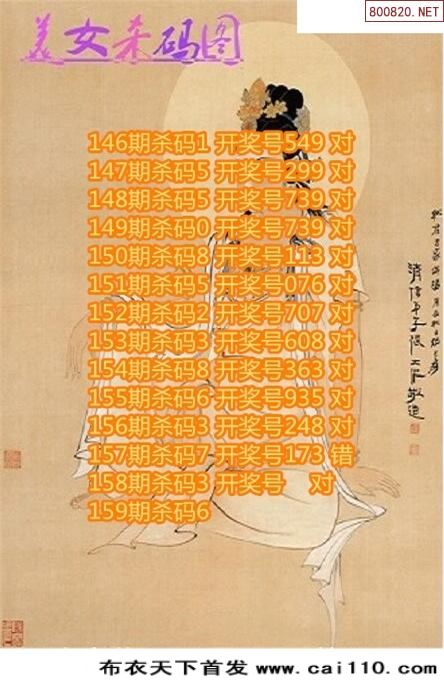 800820.NET
美女杀码图
146期杀码1 开奖号549 对
147期杀码5 开奖号299 对
148期杀码5 开奖号739 对
149期杀码0 开奖号739 对
150期杀码8 开奖号113 对
151期杀码5 开奖号076 对
152期杀码2 开奖号707 对
153期杀码3 开奖号608 对
154期杀码8 开奖号363 对
155期杀码6 开奖号935 对
156期杀码3 开奖号248 对
157期杀码7 开奖号173 错
158期杀码3 开奖号 对
159期杀码6
布衣天下首发 www.cai110.com